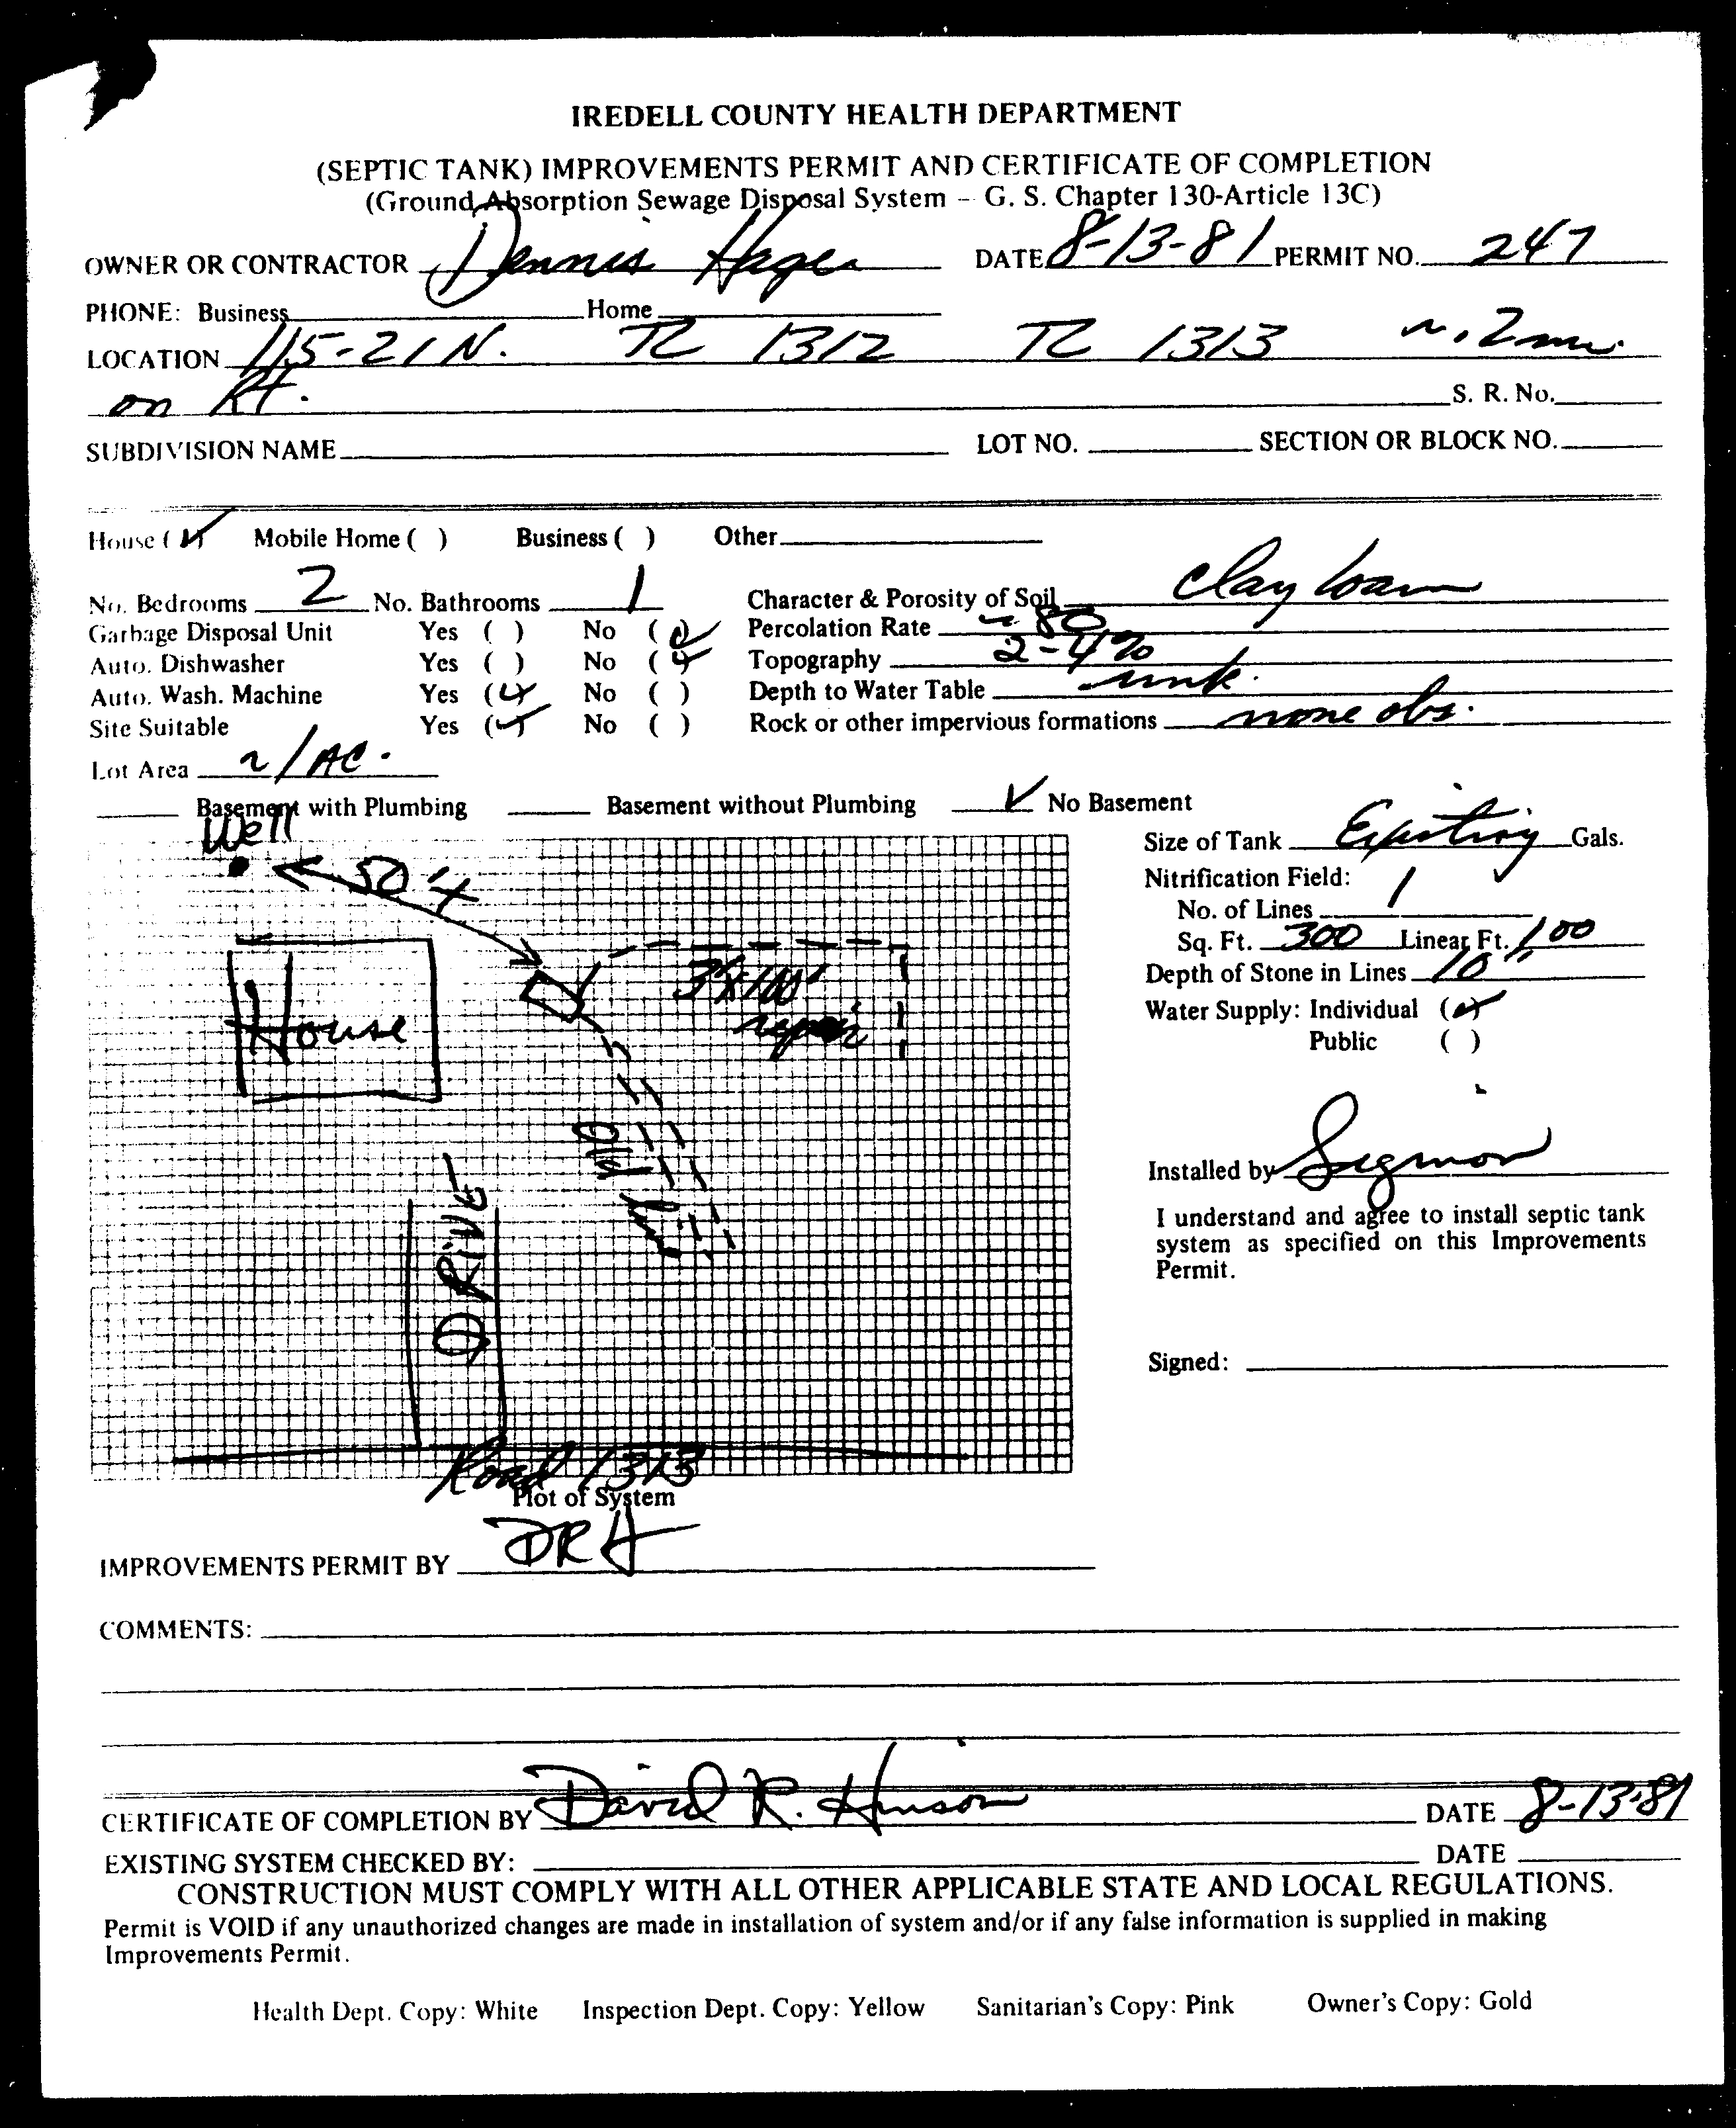 IREDELL COUNTY HEALTH DEPARTMENT
(SEPTIC TANK) IMPROVEMENTS PERMIT AND CERTIFICATE OF COMPLETION
(Ground Absorption Sewage Disposal System – G. S. Chapter 130-Article 13C)
OWNER OR CONTRACTOR Dennis Hager DATE 8-13-81 PERMIT NO. 247
PHONE: Business Home
LOCATION 115-21 N. TL 1312 TL 1313 ~.2 mi.
on Rt. S. R. No.
SUBDIVISION NAME LOT NO. SECTION OR BLOCK NO.
House (✓) Mobile Home ( ) Business ( ) Other
No. Bedrooms 2 No. Bathrooms 1 Character & Porosity of Soil Clay Loam
Garbage Disposal Unit Yes ( ) No (✓) Percolation Rate ~ 80
Auto. Dishwasher Yes ( ) No (✓) Topography 2-4%
Auto. Wash. Machine Yes (✓) No ( ) Depth to Water Table unk.
Site Suitable Yes (✓) No ( ) Rock or other impervious formations none obs.
Lot Area ~ 1 AC.
Basement with Plumbing Basement without Plumbing ✓ No Basement
Well
50'+
House
3'x100'
repair
Old
DRIVE
Road 1313
Plot of System
Size of Tank Existing Gals.
Nitrification Field:
No. of Lines 1
Sq. Ft. 300 Linear Ft. 100
Depth of Stone in Lines 10"
Water Supply: Individual (✓)
Public ( )
Installed by Sigmon
I understand and agree to install septic tank
system as specified on this Improvements
Permit.
Signed:
IMPROVEMENTS PERMIT BY DRH
COMMENTS:
CERTIFICATE OF COMPLETION BY David R. Hinson DATE 8-13-81
EXISTING SYSTEM CHECKED BY: DATE
CONSTRUCTION MUST COMPLY WITH ALL OTHER APPLICABLE STATE AND LOCAL REGULATIONS.
Permit is VOID if any unauthorized changes are made in installation of system and/or if any false information is supplied in making
Improvements Permit.
Health Dept. Copy: White Inspection Dept. Copy: Yellow Sanitarian's Copy: Pink Owner's Copy: Gold